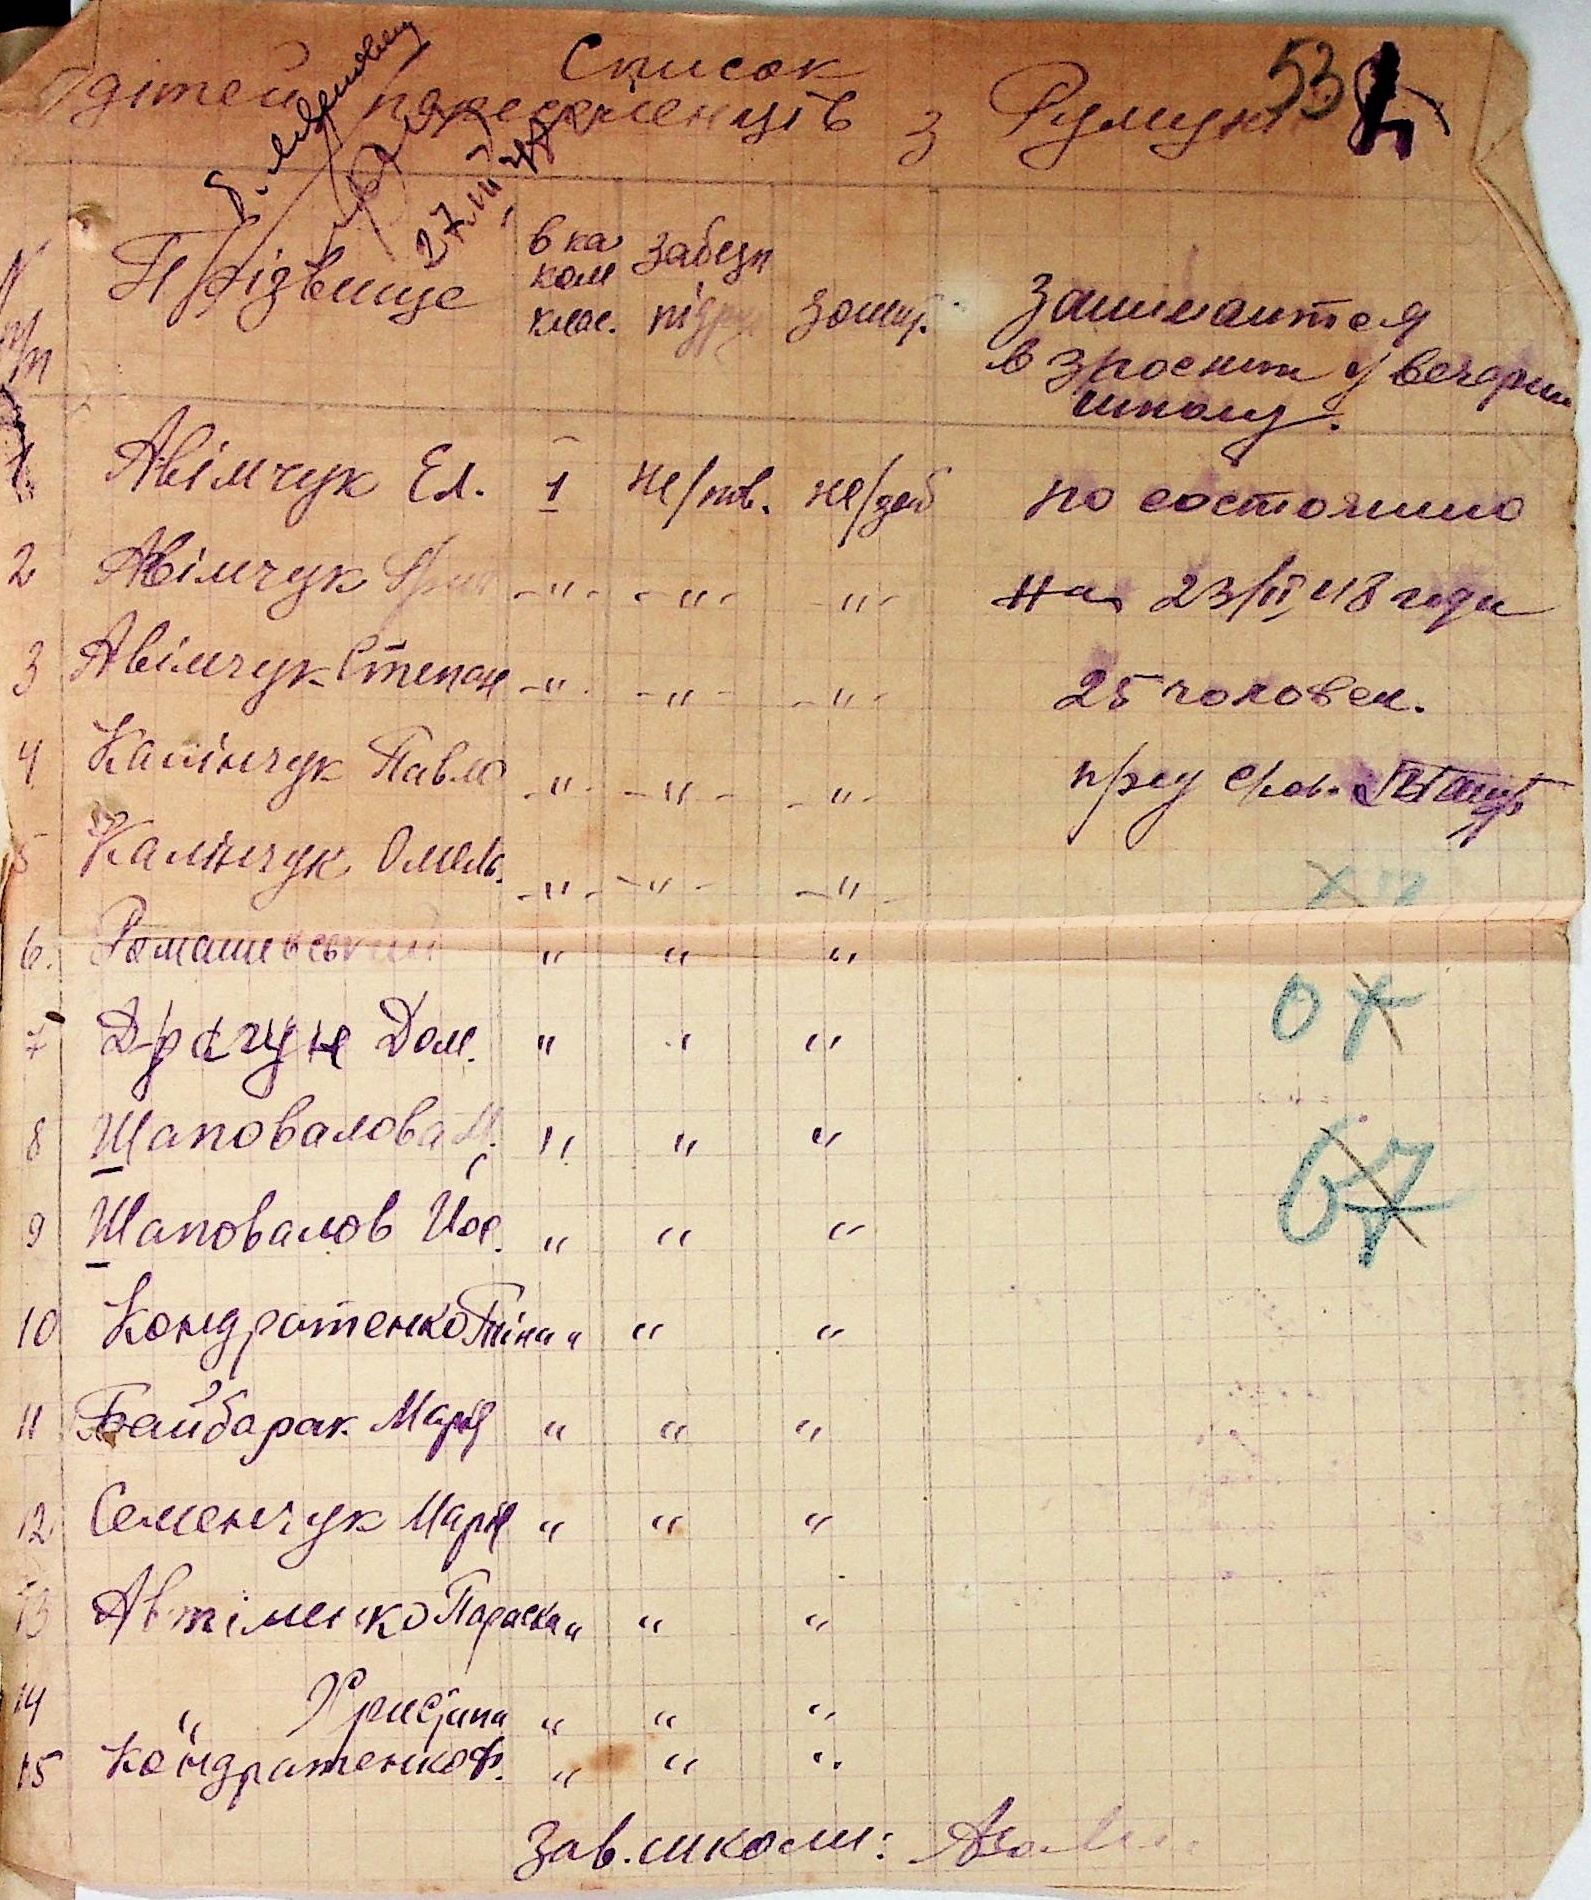 Список
дітей переселенців з Румунії
53
27/III 48
N п/п
Прізвище
в ка
ком
клас.
забезп
підру
зошит.
Занимаится
взросних у вечерню
школу.
1 Авімчук Ел. 1 не/пов. не/заб
по состоянию
2 Авімчук -"- -"- -"-
на 23/III 48 года
3 Авімчук Степан -"- -"- -"-
25 человек.
4 Калінчук Павло -"- -"- -"-
5 Калінчук Омель. -"- -"- -"-
6. Ромашевський " " "
7 Драгун Дом. " " "
8 Шаповалова М. " " "
67
9 Шаповалов Йос. " " "
10 Кондратенко Ніна " " "
11 Байбарак Марія " " "
12 Семенчук Марія " " "
13 Автіменко Параска " " "
14 " Христина " " "
15 Кондратенко Ф. " " "
Зав. школи: